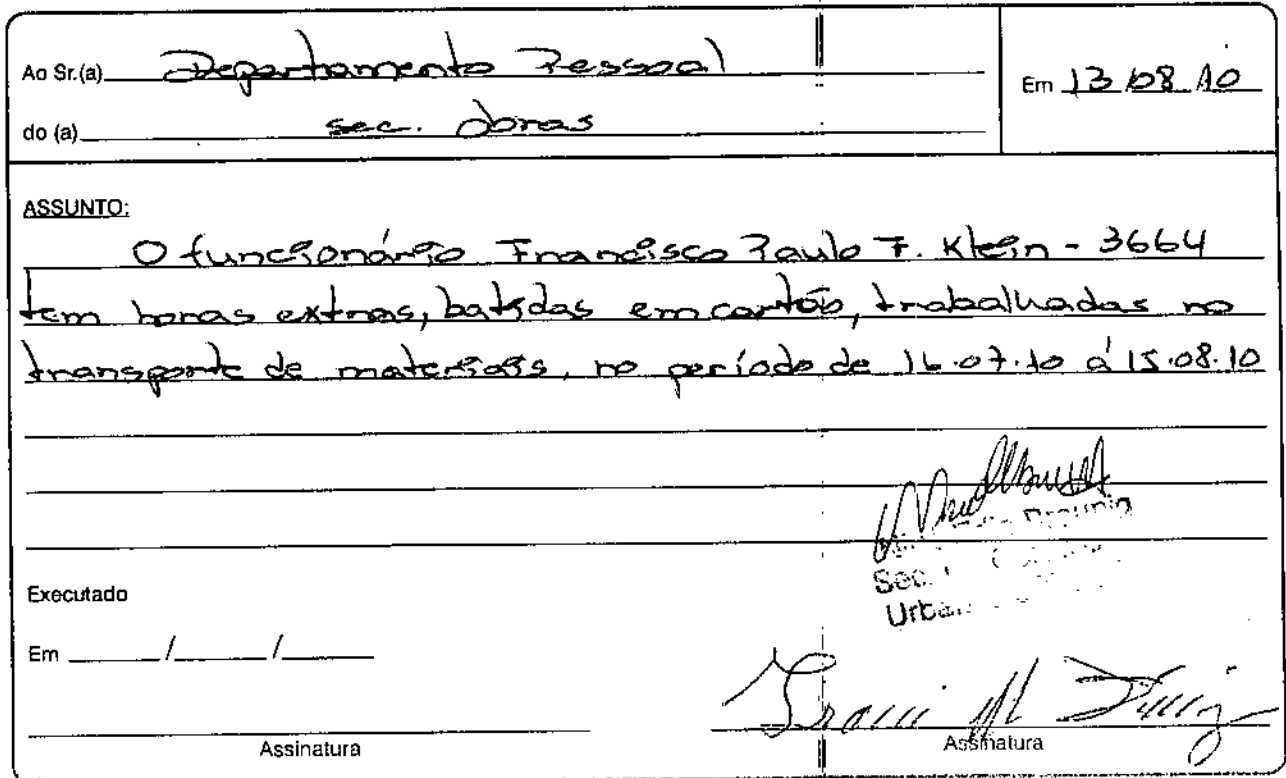 Ao Sr.(a) Departamento Pessoal
Em 13/08/10
do (a) sec. obras
ASSUNTO:
O funcionário Francisco Paulo F. Klein - 3664
tem horas extras, batidas em cartão, trabalhadas no
transporte de materiais, no período de 16.07.10 á 15.08.10
Sec.
Executado
Em / /
Assinatura
Assinatura